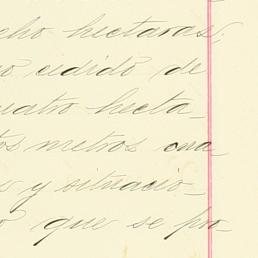 cho hectaras;
o cedido de
uatro hecta_
os metros cua
y situacio_
que se po_